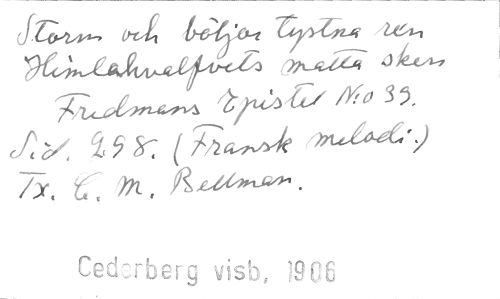 Storm och böljor tystna ren
Himlahvalfvets matta sken
Fredmans Epistel No 39.
Sid. 298. (Fransk melodi.)
Tx. C. M. Bellman.
Cederberg visb, 1906